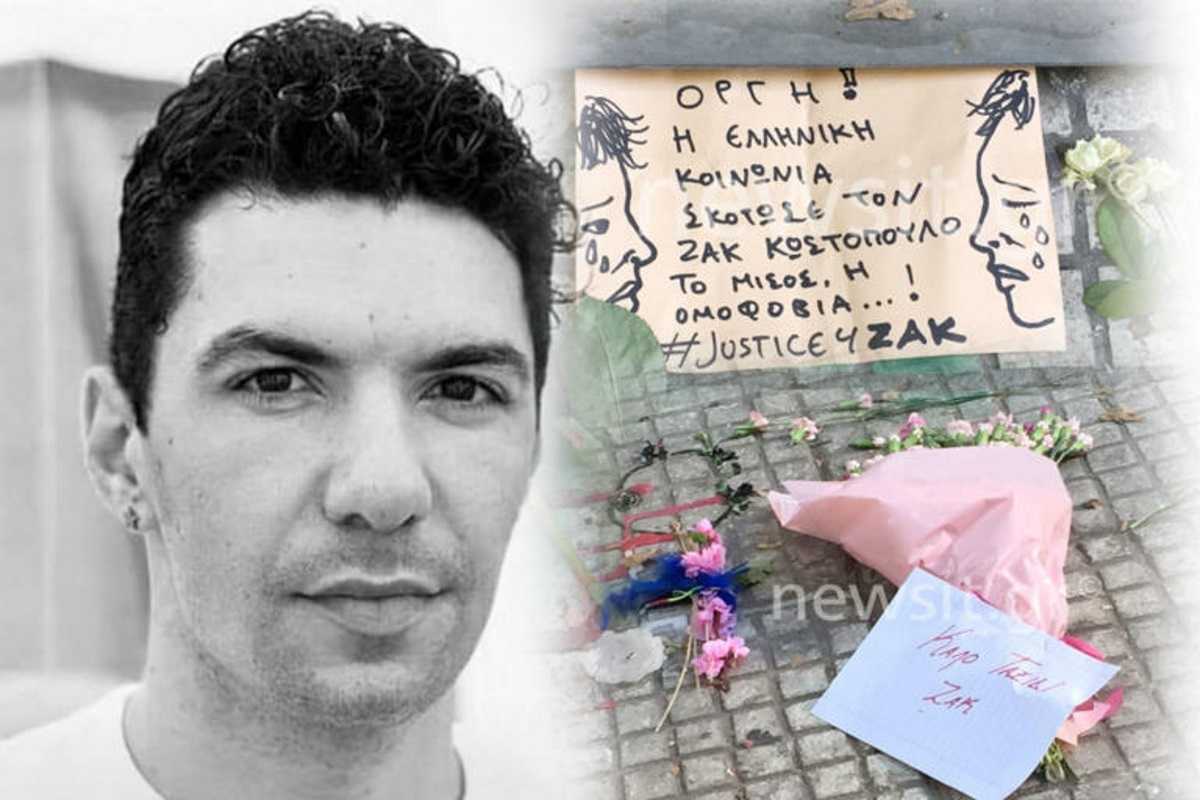 ΟΡΓΗ!!
Η ΕΛΛΗΝΙΚΗ
ΚΟΙΝΩΝΙΑ
ΣΚΟΤΩΣΕ ΤΟΝ
ΖΑΚ ΚΩΣΤΟΠΟΥΛΟ
ΤΟ ΜΙΣΟΣ, Η
ΟΜΟΦΟΒΙΑ...!
#JUSTICE4ZAK
newsit.gr
newsit.gr
Καλο Ταξιδι
Ζακ